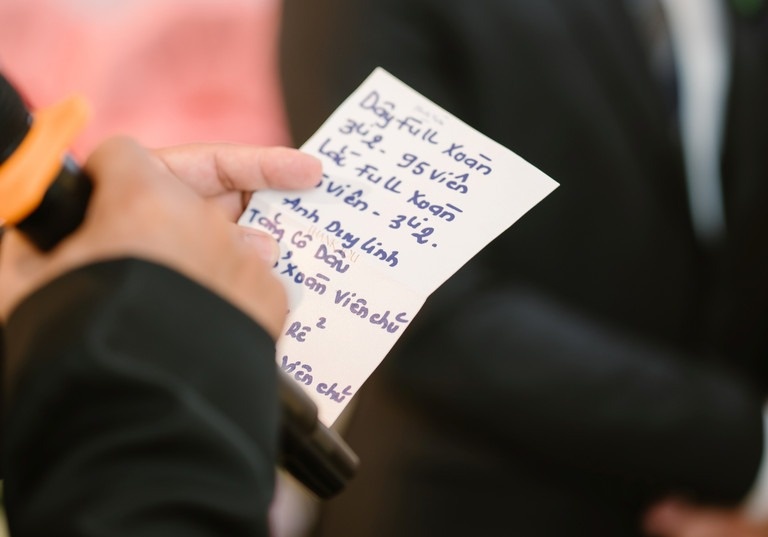 Dây Full Xoàn
3u2. 95 viên
Lắc Full Xoàn
5 viên - 3u2.
Anh Duy Linh
Tặng Cô Dâu
Xoàn viên chủ
Rể 2
viên chủ